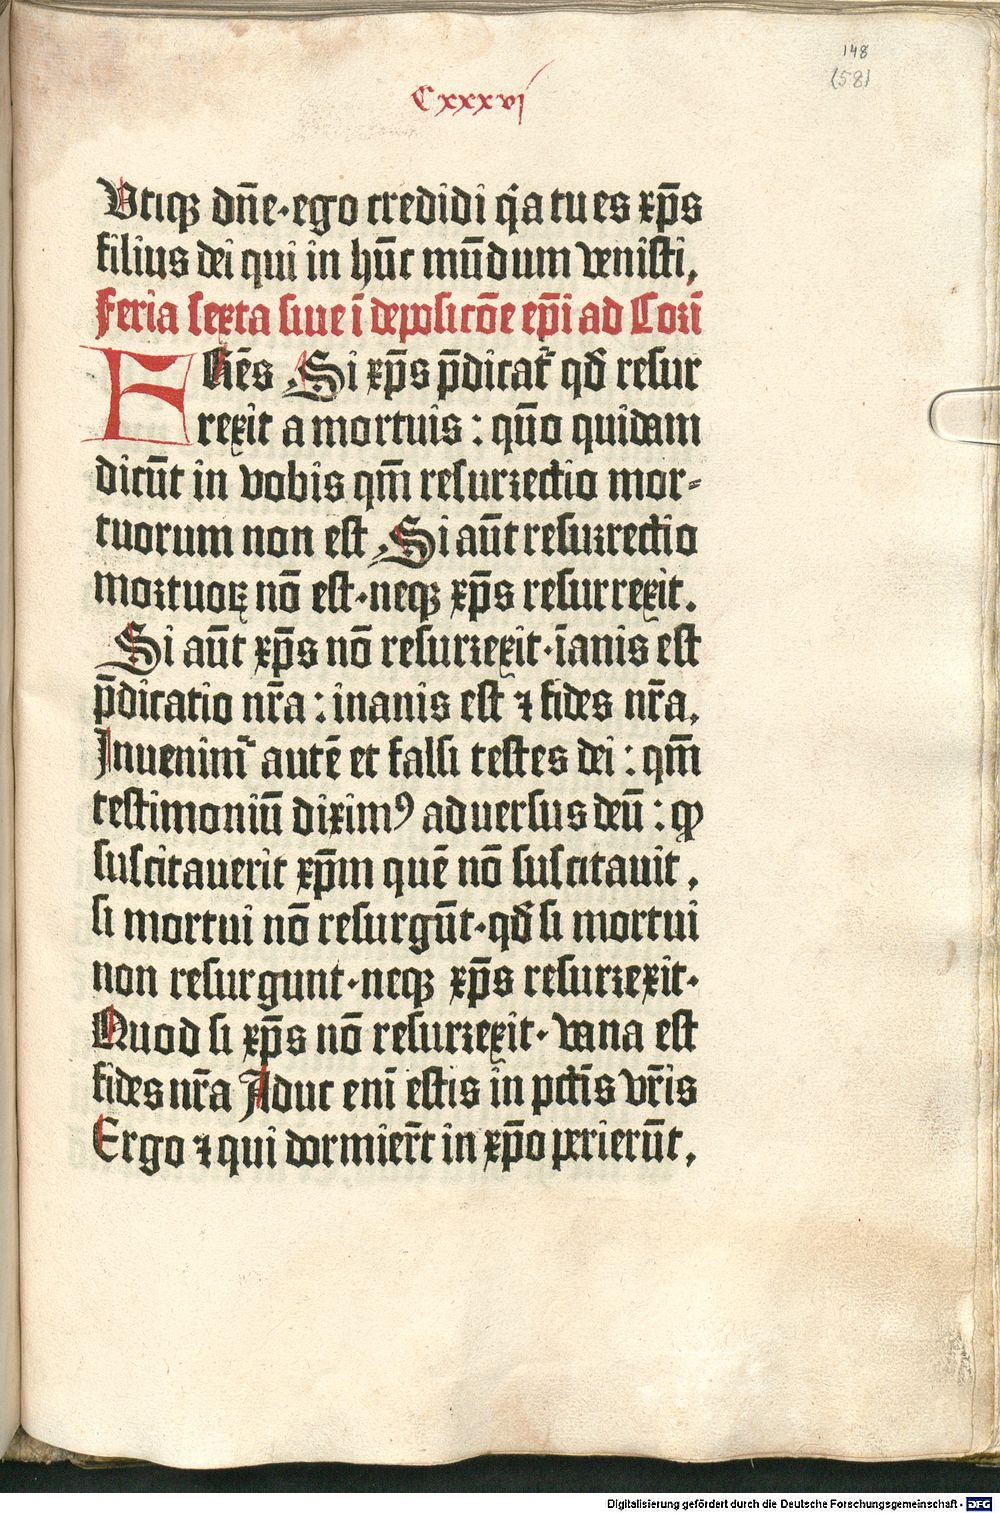 148
(58)
Cxxxvi
Vtiqꝫ dn̄e·ego credidi qͥa tu es xp̄s
filius dei qui in hūc mūdum venisti,
Feria sexta siue ī deposicōe ep̄i ad Corī
Fr̄es Si xp̄s p̄dicat᷑ qd̄ resur
rexit a mortuis : quō quidam
dicūt in vobis qm̄ resurꝛectio mor⸗
tuorum non est Si aūt resurrectio
moꝛtuoꝝ nō est·neqꝫ xp̄s resurrexit.
Si aūt xp̄s nō resurꝛexit·īanis est
p̄dicatio nr̄a : inanis est ⁊ fides nr̄a,
Inuenimꝰ autē et falsi testes dei : qm̄
testimoniū diximꝰ aduersus deū : ꝙ
suscitauerit xp̄m quē nō suscitauit,
si mortui nō resurgūt·qd̄ si mortui
non resurgunt·neqꝫ xp̄s resurꝛexit·
Quod si xp̄s nō resurꝛexit· vana est
fides nr̄a Aduc enī estis in pctīs vr̄is
Ergo ⁊ qui dormier̄t in xp̄o perierūt,
Digitalisierung gefördert durch die Deutsche Forschungsgemeinschaft - DFG